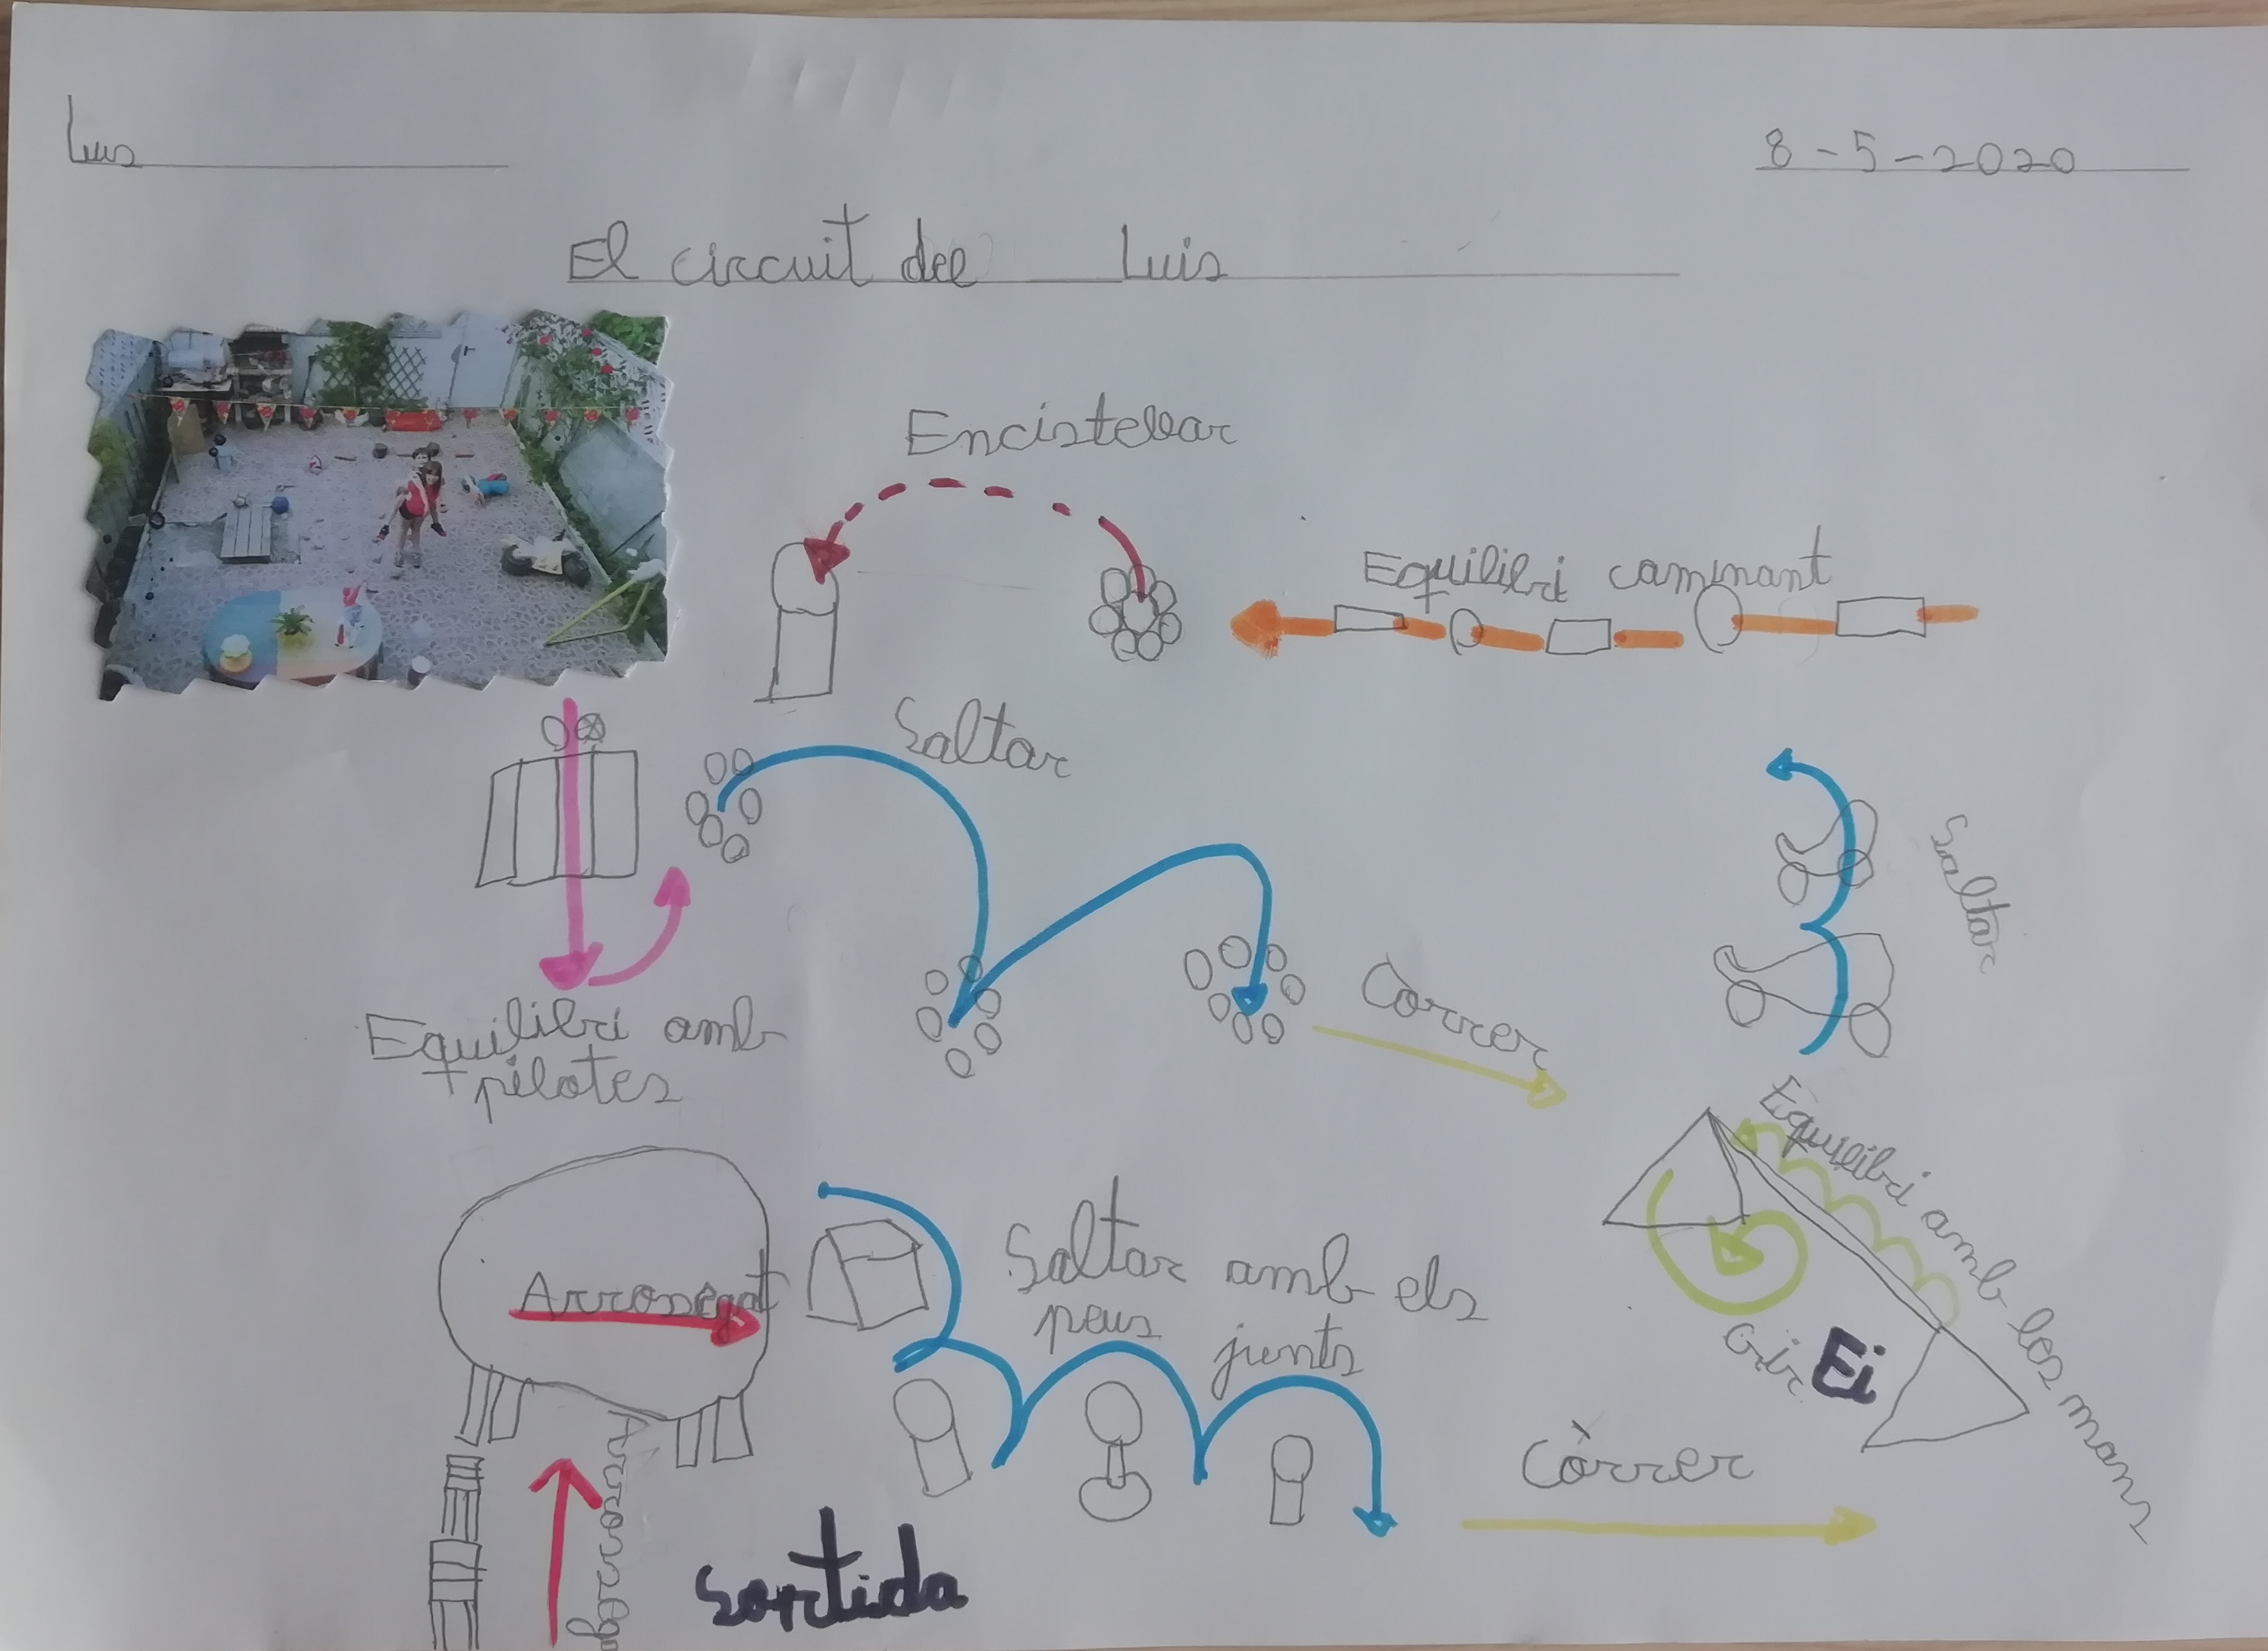 Luis
8-5-2020
El circuit del Luis
Encistellar
Equilibri caminant
Saltar
Saltar
Còrrer
Equilibri amb
pilotes
Equilibri amb les mans
Arrossegat
Saltar amb els
peus junts
Girar
Ei
Còrrer
Sortida